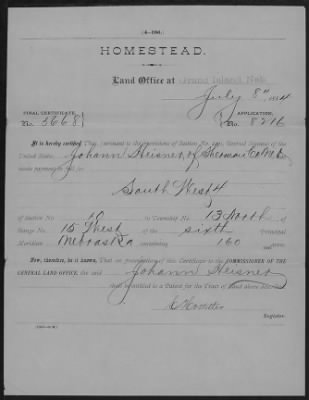 (4—196.)
HOMESTEAD.
Land Office at Grand Island, Neb
July 8" 1884
FINAL CERTIFICATE, APPLICATION,
No. 3668 No. 8216
It is hereby certified That, pursuant to the provisions of Section No. 2291, Revised Statutes of the
United States, Johann Heisner, of Sherman Co Neb
made payment in full for
South West ¼
of Section No. in Township No. 13 North of
Range No. 15 West of the sixth Principal
Meridian Nebraska containing 160 acres.
Now, therefore, be it known, That on presentation of this Certificate to the COMMISSIONER OF THE
GENERAL LAND OFFICE, the said Johann Heisner
shall be entitled to a Patent for the Tract of Land above described.
Register.